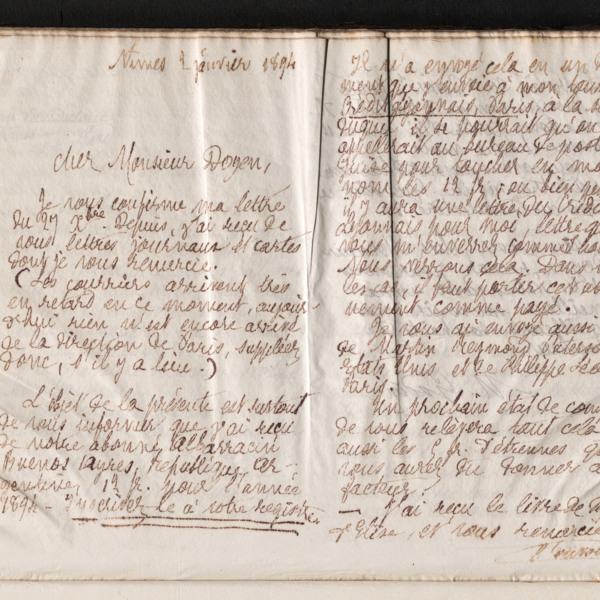 Nimes 2 janvier 1894
cher Monsieur Doyen,
Je vous confirme ma lettre
du 27 Xbre. Depuis, j'ai reçu de
vous lettres journaux et cartes
dont je vous remercie.
(Les courriers arrivent très
en retard en ce moment, aujour-
d'hui rien n'est encore arrivé
de la direction de Paris, suppléez
donc, s'il y a lieu.)
L'objet de la présente est surtout
de vous informer que j'ai reçu
de notre abonné Albarracin
Buenos Ayres, République Ar-
gentine, 12 fr. pour l'année
1894 - Inscrivez le à votre registre
Il m'a envoyé cela en un
ment que j'envoie à mon tour
Crédit Lyonnais, Paris, à la
il se pourrait qu'on
appellerait au bureau de poste
pour toucher en mo
nom les 12 fr; ou bien
il y aura une lettre du Crédit
Lyonnais pour moi, lettre que
vous m'enverrez comme il
Nous verrons cela. Dans
les cas, il faut porter cet abon
nement comme payé.
Je vous ai envoyé aussi
de Martin Reymond
Etats Unis et de Philippe
Paris.
Un prochain état de com
de vous relèvera tout cela
aussi les 5 fr. d'étrennes
vous aurez du donner a
facteur.
— J'ai reçu le livre de
d'Elise, et vous remercie